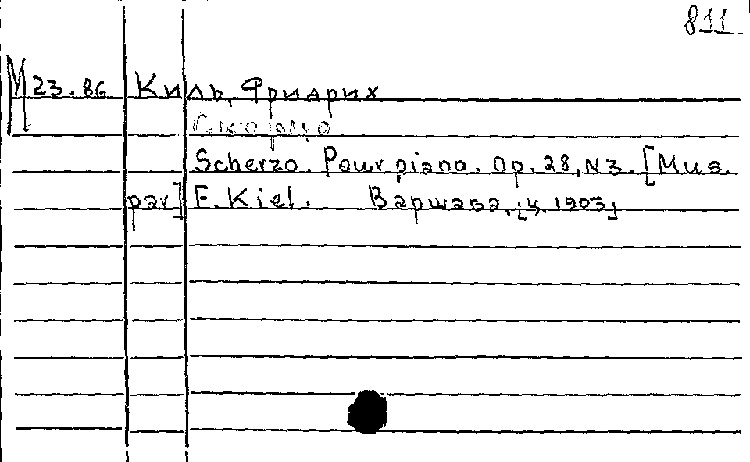 811
М 23.86 Киль, Фридрих
Скерцо
Scherzo. Pour piano. Op. 28, N3. [Mus.
par] F. Kiel. Варшава, [ц. 1903]